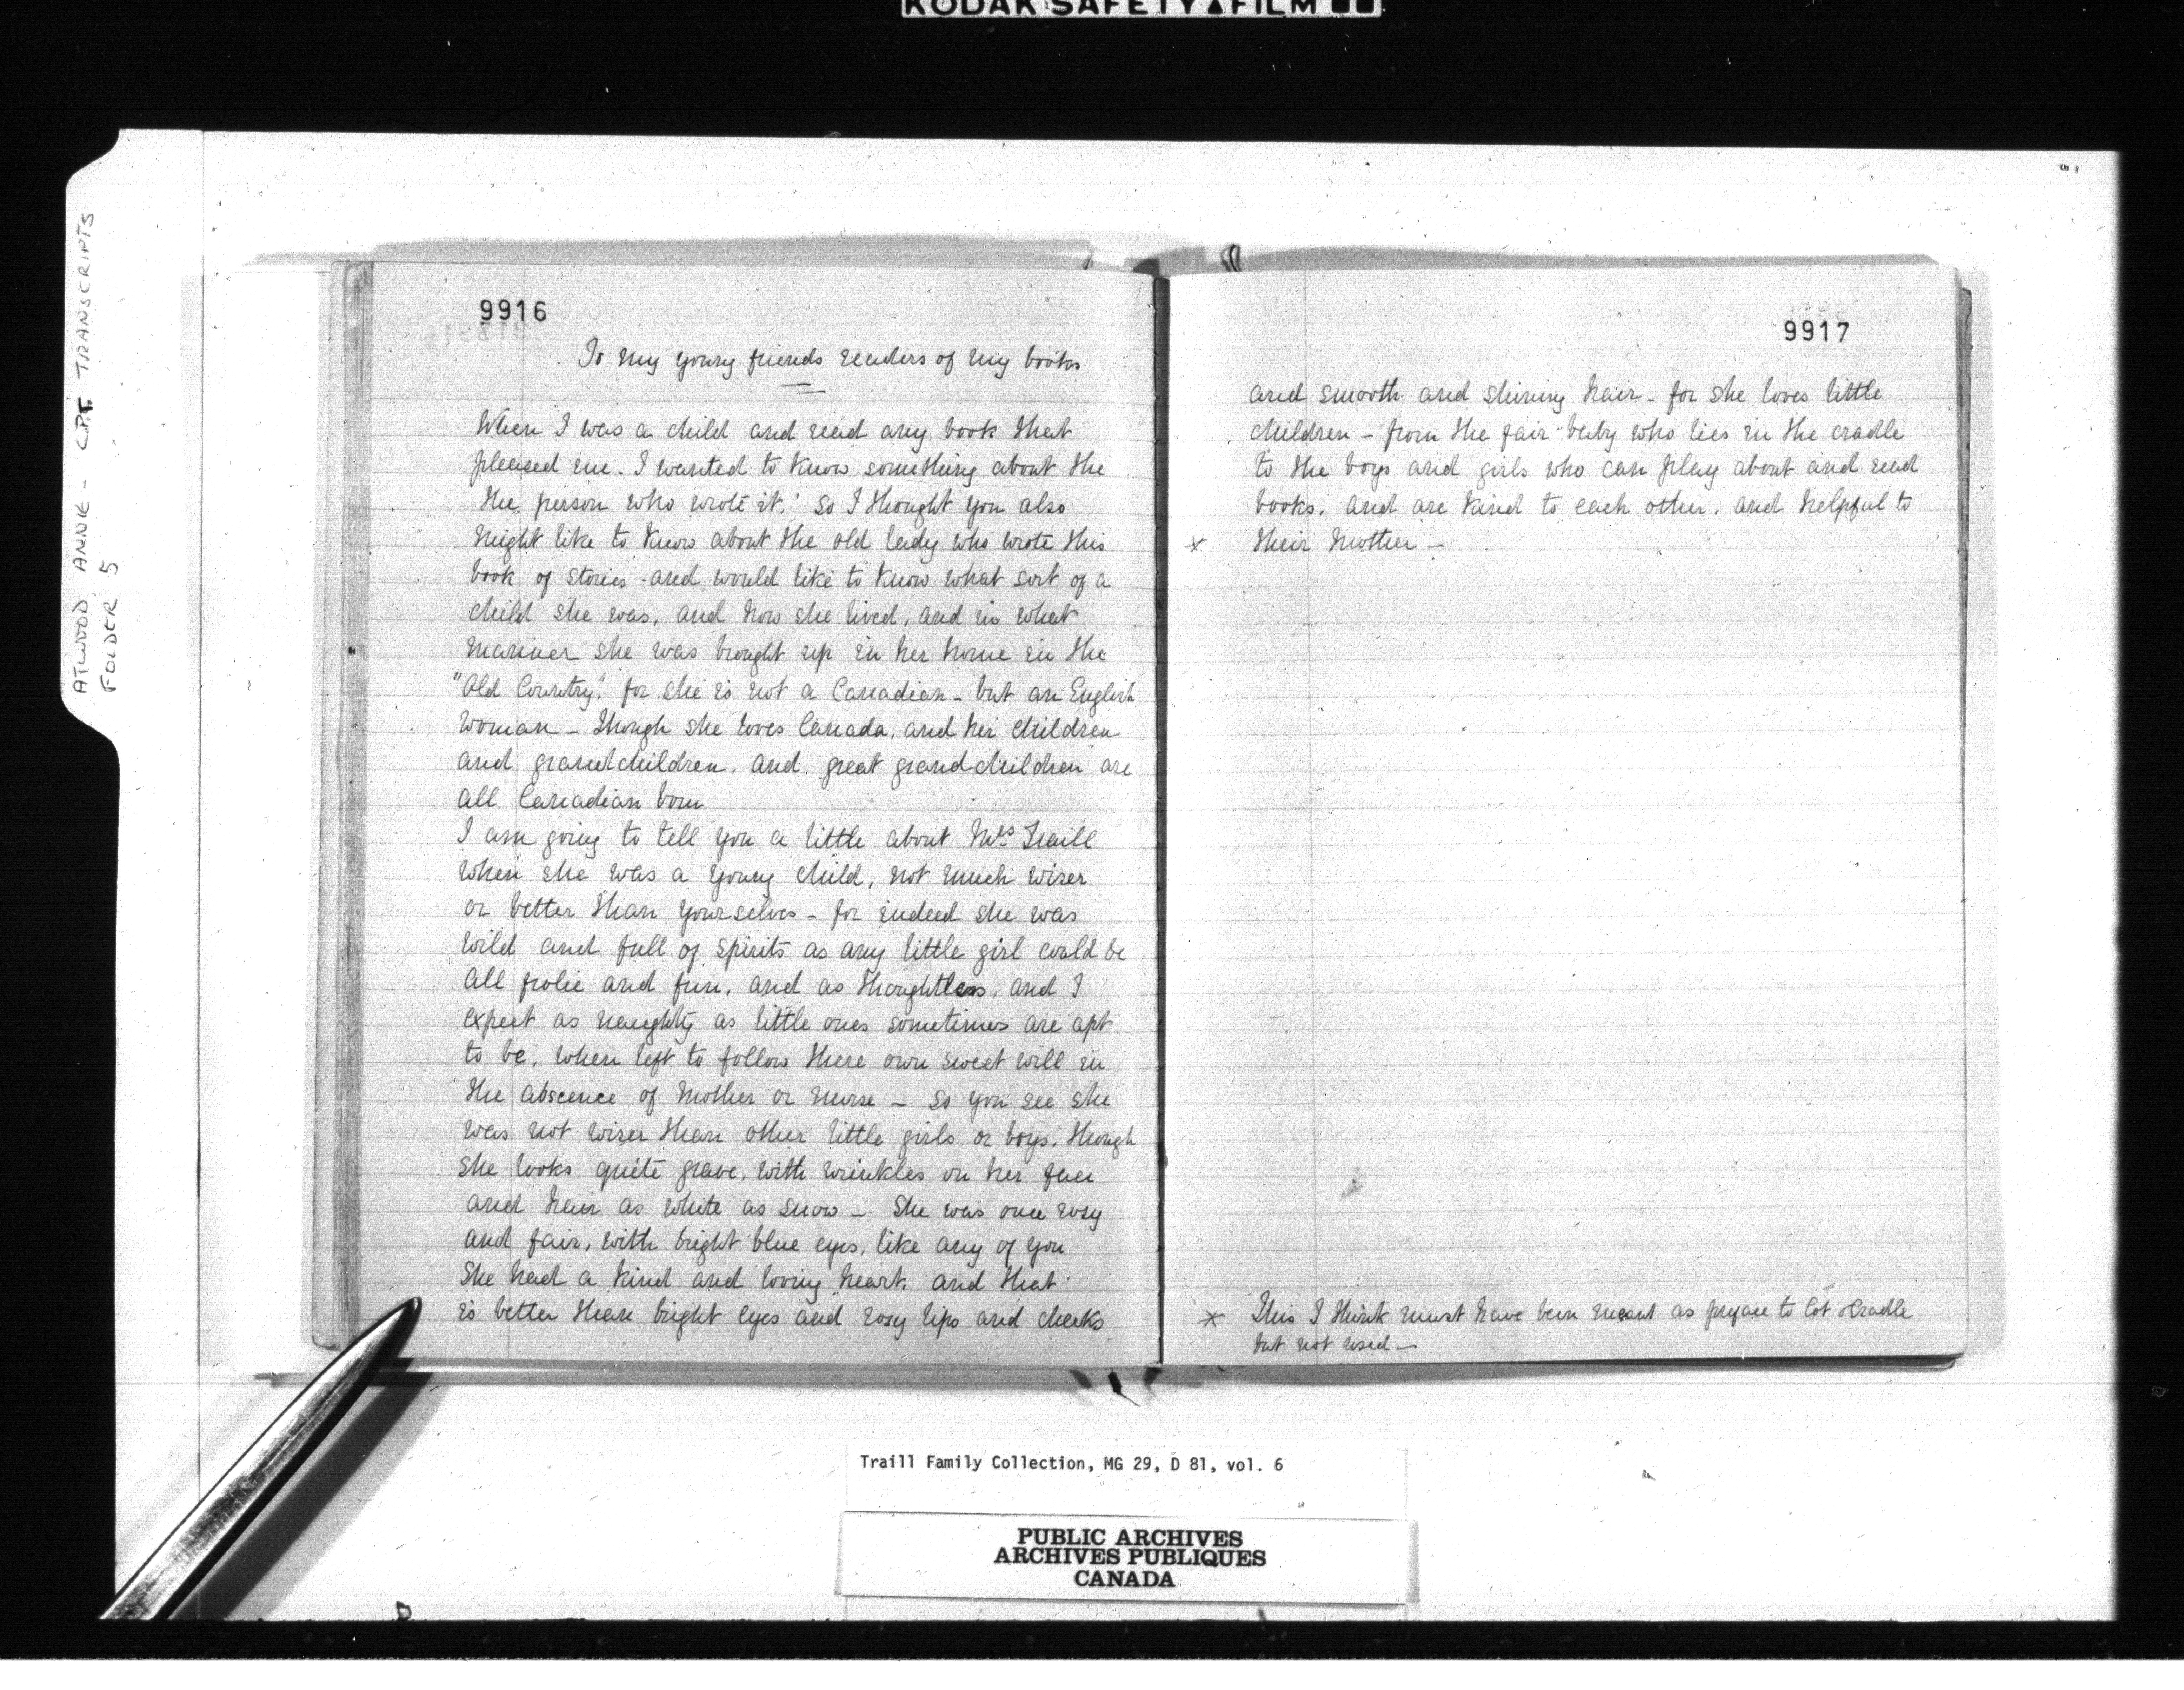 KODAK SAFETY FILM
ATWOOD, ANNIE - C.P.T. TRANSCRIPTS
FOLDER 5
9916
To my young friends readers of my books
When I was a child and read any book that
pleased me. I wanted to know something about the
the person who wrote it. So I thought you also
might like to know about the old lady who wrote this
book of stories - and would like to know what sort of a
child she was, and how she lived, and in what
manner she was brought up in her home in the
"Old Country," for she is not a Canadian - but an English
woman - Though she loves Canada, and her children
and grandchildren, and great grandchildren are
all Canadian born
I am going to tell you a little about Mrs Traill
when she was a young child, not much wiser
or better than yourselves - for indeed she was
wild and full of spirits as any little girl could be
all frolic and fun, and as thoughtless, and I
expect as naughty as little ones sometimes are apt
to be, when left to follow there own sweet will in
the abscence of mother or nurse - so you see she
was not wiser than other little girls or boys, though
she looks quite grave, with wrinkles on her face
and hair as white as snow - She was once rosy
and fair, with bright blue eyes, like any of you
She had a kind and loving heart. and that
is better than bright eyes and rosy lips and cheeks
9917
and smooth and shining hair - for she loves little
children - from the fair baby who lies in the cradle
to the boys and girls who can play about and read
books, and are kind to each other, and helpful to
* their mother -
* This I think must have been meant as preface to Cot & Cradle
but not used -
Traill Family Collection, MG 29, D 81, vol. 6
PUBLIC ARCHIVES
ARCHIVES PUBLIQUES
CANADA